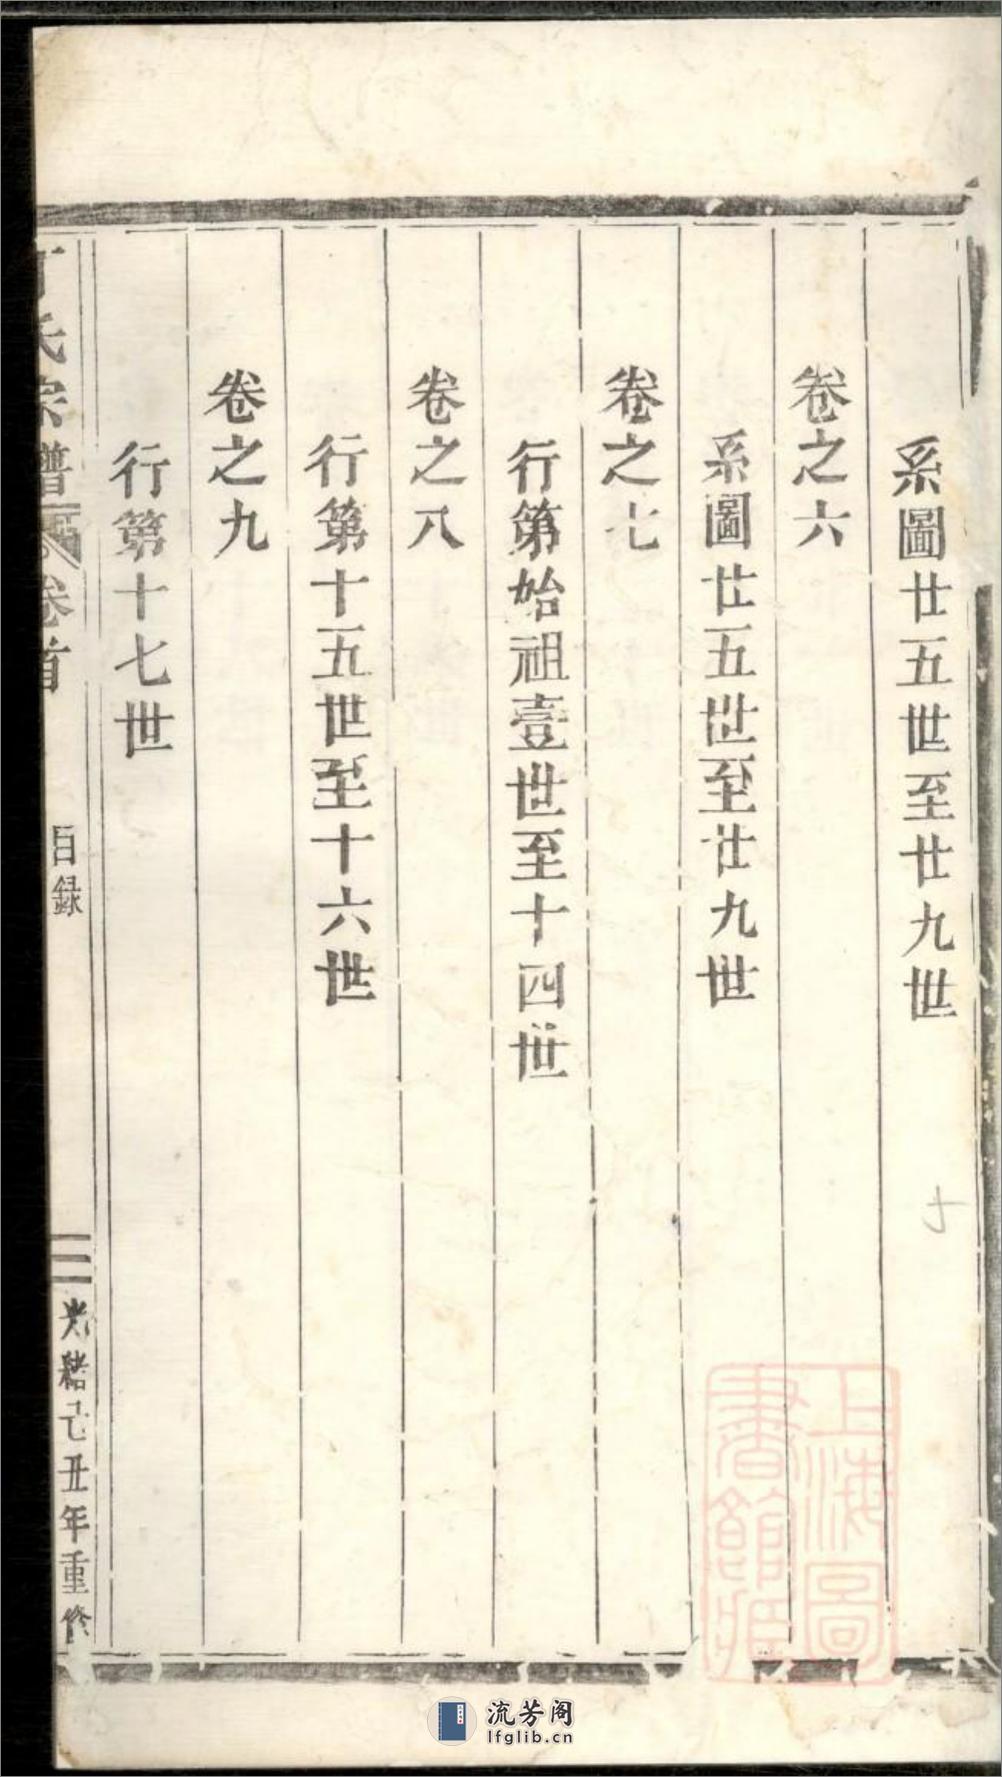 系圖廿五世至廿九世
卷之六
系圖廿五世至廿九世
卷之七
行第始祖壹世至十四世
卷之八
行第十五世至十六世
卷之九
行第十七世
氏宗譜
卷首
目錄
二
光緒己丑年重修
七
上海圖
書館藏
流芳阁
lfglib.cn